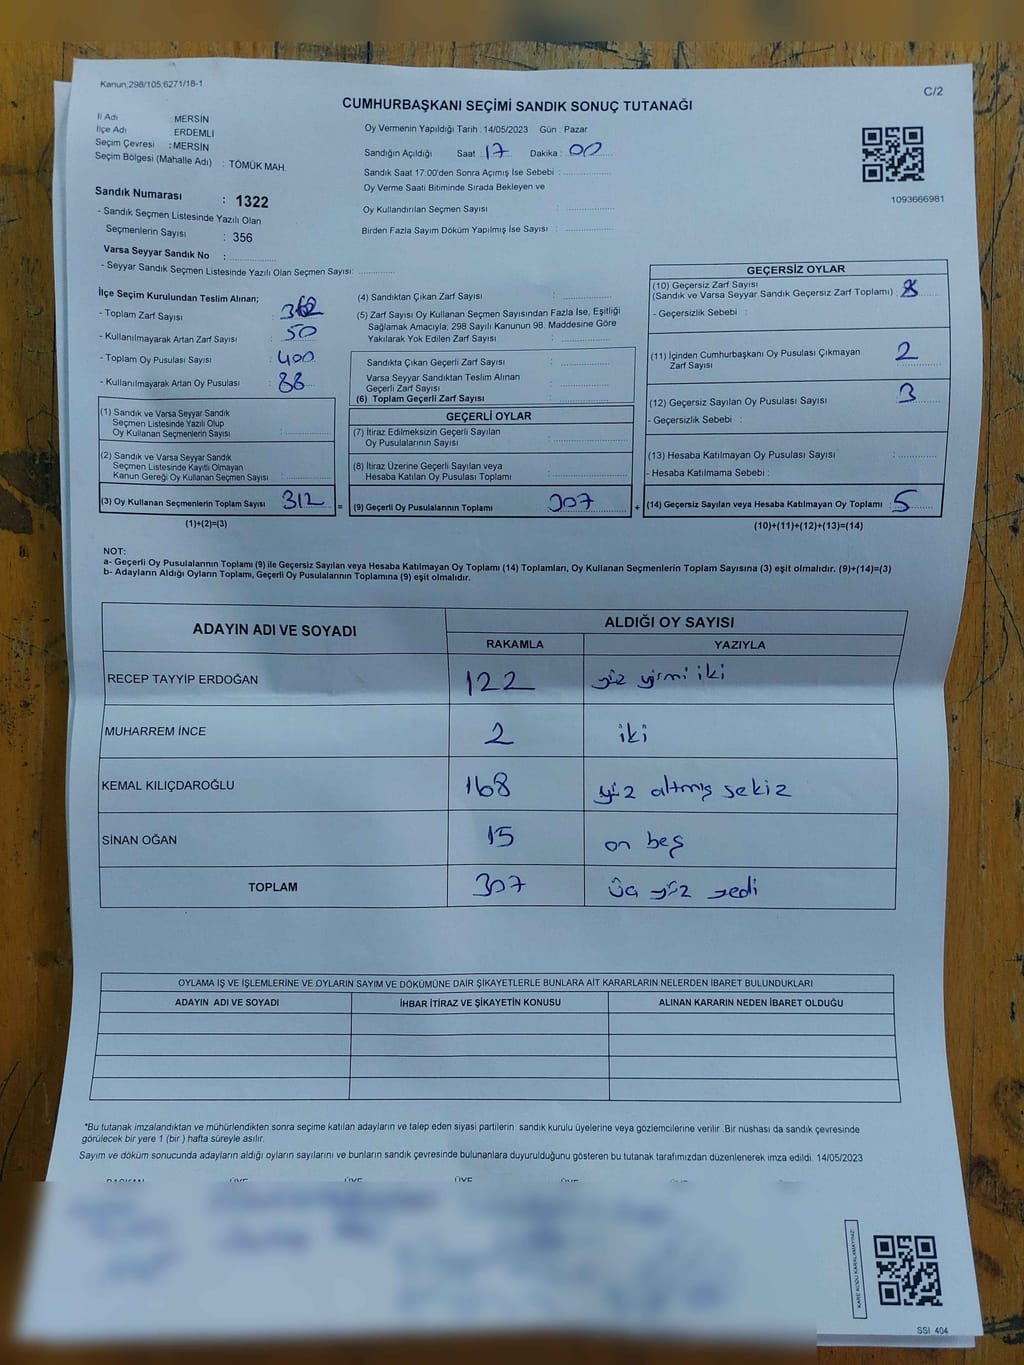 Kanun:298/105;6271/18-1
C/2
CUMHURBAŞKANI SEÇİMİ SANDIK SONUÇ TUTANAĞI
İl Adı : MERSİN
İlçe Adı : ERDEMLİ
Seçim Çevresi : MERSİN
Seçim Bölgesi (Mahalle Adı) : TÖMÜK MAH.
Oy Vermenin Yapıldığı Tarih : 14/05/2023 Gün : Pazar
Sandığın Açıldığı Saat : 17 Dakika : 00
Sandık Saat 17:00'den Sonra Açımış İse Sebebi :
Oy Verme Saati Bitiminde Sırada Bekleyen ve
Oy Kullandırılan Seçmen Sayısı :
Birden Fazla Sayım Döküm Yapılmış İse Sayısı :
1093666981
Sandık Numarası : 1322
- Sandık Seçmen Listesinde Yazılı Olan
Seçmenlerin Sayısı : 356
Varsa Seyyar Sandık No :
- Seyyar Sandık Seçmen Listesinde Yazılı Olan Seçmen Sayısı:
İlçe Seçim Kurulundan Teslim Alınan;
- Toplam Zarf Sayısı :
- Kullanılmayarak Artan Zarf Sayısı : 50
- Toplam Oy Pusulası Sayısı : 400
- Kullanılmayarak Artan Oy Pusulası : 88
(1) Sandık ve Varsa Seyyar Sandık
Seçmen Listesinde Yazılı Olup
Oy Kullanan Seçmenlerin Sayısı :
(2) Sandık ve Varsa Seyyar Sandık
Seçmen Listesinde Kayıtlı Olmayan
Kanun Gereği Oy Kullanan Seçmen Sayısı :
(3) Oy Kullanan Seçmenlerin Toplam Sayısı 312 =
(1)+(2)=(3)
(4) Sandıktan Çıkan Zarf Sayısı :
(5) Zarf Sayısı Oy Kullanan Seçmen Sayısından Fazla İse, Eşitliği
Sağlamak Amacıyla; 298 Sayılı Kanunun 98. Maddesine Göre
Yakılarak Yok Edilen Zarf Sayısı :
Sandıkta Çıkan Geçerli Zarf Sayısı :
Varsa Seyyar Sandıktan Teslim Alınan
Geçerli Zarf Sayısı :
(6) Toplam Geçerli Zarf Sayısı :
GEÇERLİ OYLAR
(7) İtiraz Edilmeksizin Geçerli Sayılan
Oy Pusulalarının Sayısı :
(8) İtiraz Üzerine Geçerli Sayılan veya
Hesaba Katılan Oy Pusulası Toplamı :
(9) Geçerli Oy Pusulalarının Toplamı 307 +
GEÇERSİZ OYLAR
(10) Geçersiz Zarf Sayısı
(Sandık ve Varsa Seyyar Sandık Geçersiz Zarf Toplamı) :
- Geçersizlik Sebebi :
(11) İçinden Cumhurbaşkanı Oy Pusulası Çıkmayan
Zarf Sayısı : 2
(12) Geçersiz Sayılan Oy Pusulası Sayısı : 3
- Geçersizlik Sebebi :
(13) Hesaba Katılmayan Oy Pusulası Sayısı :
- Hesaba Katılmama Sebebi :
(14) Geçersiz Sayılan veya Hesaba Katılmayan Oy Toplamı : 5
(10)+(11)+(12)+(13)=(14)
NOT:
a- Geçerli Oy Pusulalarının Toplamı (9) ile Geçersiz Sayılan veya Hesaba Katılmayan Oy Toplamı (14) Toplamları, Oy Kullanan Seçmenlerin Toplam Sayısına (3) eşit olmalıdır. (9)+(14)=(3)
b- Adayların Aldığı Oyların Toplamı, Geçerli Oy Pusulalarının Toplamına (9) eşit olmalıdır.
ADAYIN ADI VE SOYADI ALDIĞI OY SAYISI
RAKAMLA YAZIYLA
RECEP TAYYİP ERDOĞAN 122 yüz yirmi iki
MUHARREM İNCE 2 iki
KEMAL KILIÇDAROĞLU 168 yüz altmış sekiz
SİNAN OĞAN 15 on beş
TOPLAM 307 üç yüz yedi
OYLAMA İŞ VE İŞLEMLERİNE VE OYLARIN SAYIM VE DÖKÜMÜNE DAİR ŞİKAYETLERLE BUNLARA AİT KARARLARIN NELERDEN İBARET BULUNDUKLARI
ADAYIN ADI VE SOYADI İHBAR İTİRAZ VE ŞİKAYETİN KONUSU ALINAN KARARIN NEDEN İBARET OLDUĞU
*Bu tutanak imzalandıktan ve mühürlendikten sonra seçime katılan adayların ve talep eden siyasi partilerin sandık kurulu üyelerine veya gözlemcilerine verilir .Bir nüshası da sandık çevresinde
görülecek bir yere 1 (bir ) hafta süreyle asılır.
Sayım ve döküm sonucunda adayların aldığı oyların sayılarını ve bunların sandık çevresinde bulunanlara duyurulduğunu gösteren bu tutanak tarafımızdan düzenlenerek imza edildi. 14/05/2023
BAŞKAN ÜYE ÜYE ÜYE ÜYE
KARE KODU KARALAMAYINIZ!
SSİ 404